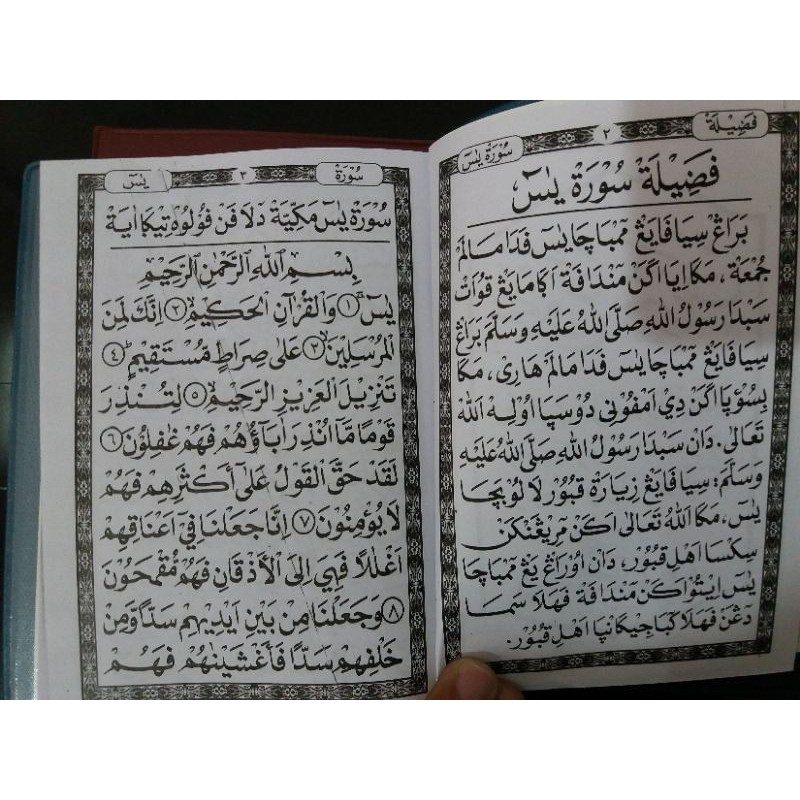 فضيلة
٢
سورة يٰسٓ
فَضِيْلَةْ سُوْرَةْ يٰسٓ
بَرَاڠْ سِيَافَايَڠْ ممْبَاچَا يٰسٓ فَدَا مَالَمْ
جُمْعَةْ، مَكَا إِيَا اَكَنْ مَنْدَافَةْ اَكَامَا يَڠْ قُوَاتْ
سَبْدَا رَسُوْلُ اللهِ صَلَّى اللهُ عَلَيْهِ وَسَلَّمَ بَرَاڠْ
سِيَافَايَڠْ ممْبَاچَا يٰسٓ فَدَا مَالَمْ هَارِى، مَكَا
بِسُوْءپَا اَكَنْ دِي اَمْفُوْنِى دُوْسَپَا اُولِهْ اللهْ
تَعَالَى. دَانْ سَبْدَا رَسُوْلُ اللهِ صَلَّى اللهُ عَلَيْهِ
وَسَلَّمَ: سِيَافَايَڠْ زِيَارَةْ قُبُوْرْ لَالُوْ بَچَا
يٰسٓ، مَكَا اللهُ تَعَالَى اَكَنْ مرِيڠَنْكَنْ
سِكْسَا اَهْلِ قُبُوْرْ، دَانْ اُوْرَاڠْ يَڠْ ممْبَاچَا
يٰسٓ اِيْتُوْ اَكَنْ مَنْدَافَةْ فَهَلَا سَمَا
دڠَنْ فَهَلَا كَبَاجِيكَانپَا اَهْلِ قُبُوْرْ.
سُوْرَة
٣
يٰسٓ
سُوْرَةْ يٰسٓ مَكِّيَّةْ دلَافَنْ فُوْلُوْهْ تِيْكَا اٰيَةْ
بِسْمِ اللهِ الرَّحْمٰنِ الرَّحِيْمِ
يٰسٓ ۚ ﴿١﴾ وَالْقُرْآنِ الْحَكِيْمِ ۙ ﴿٢﴾ اِنَّكَ لَمِنَ
الْمُرْسَلِيْنَ ۙ ﴿٣﴾ عَلٰى صِرَاطٍ مُسْتَقِيْمٍ ۗ ﴿٤﴾
تَنْزِيْلَ الْعَزِيْزِ الرَّحِيْمِ ۙ ﴿٥﴾ لِتُنْذِرَ
قَوْمًا مَّا اُنْذِرَ اٰبَاؤُهُمْ فَهُمْ غٰفِلُوْنَ ﴿٦﴾
لَقَدْ حَقَّ الْقَوْلُ عَلٰى اَكْثَرِهِمْ فَهُمْ
لَا يُؤْمِنُوْنَ ﴿٧﴾ اِنَّا جَعَلْنَا فِيْ اَعْنَاقِهِمْ
اَغْلٰلًا فَهِيَ اِلَى الْاَذْقَانِ فَهُمْ مُقْمَحُوْنَ
﴿٨﴾ وَجَعَلْنَا مِنْ بَيْنِ اَيْدِيْهِمْ سَدًّا وَّمِنْ
خَلْفِهِمْ سَدًّا فَاَغْشَيْنٰهُمْ فَهُمْ